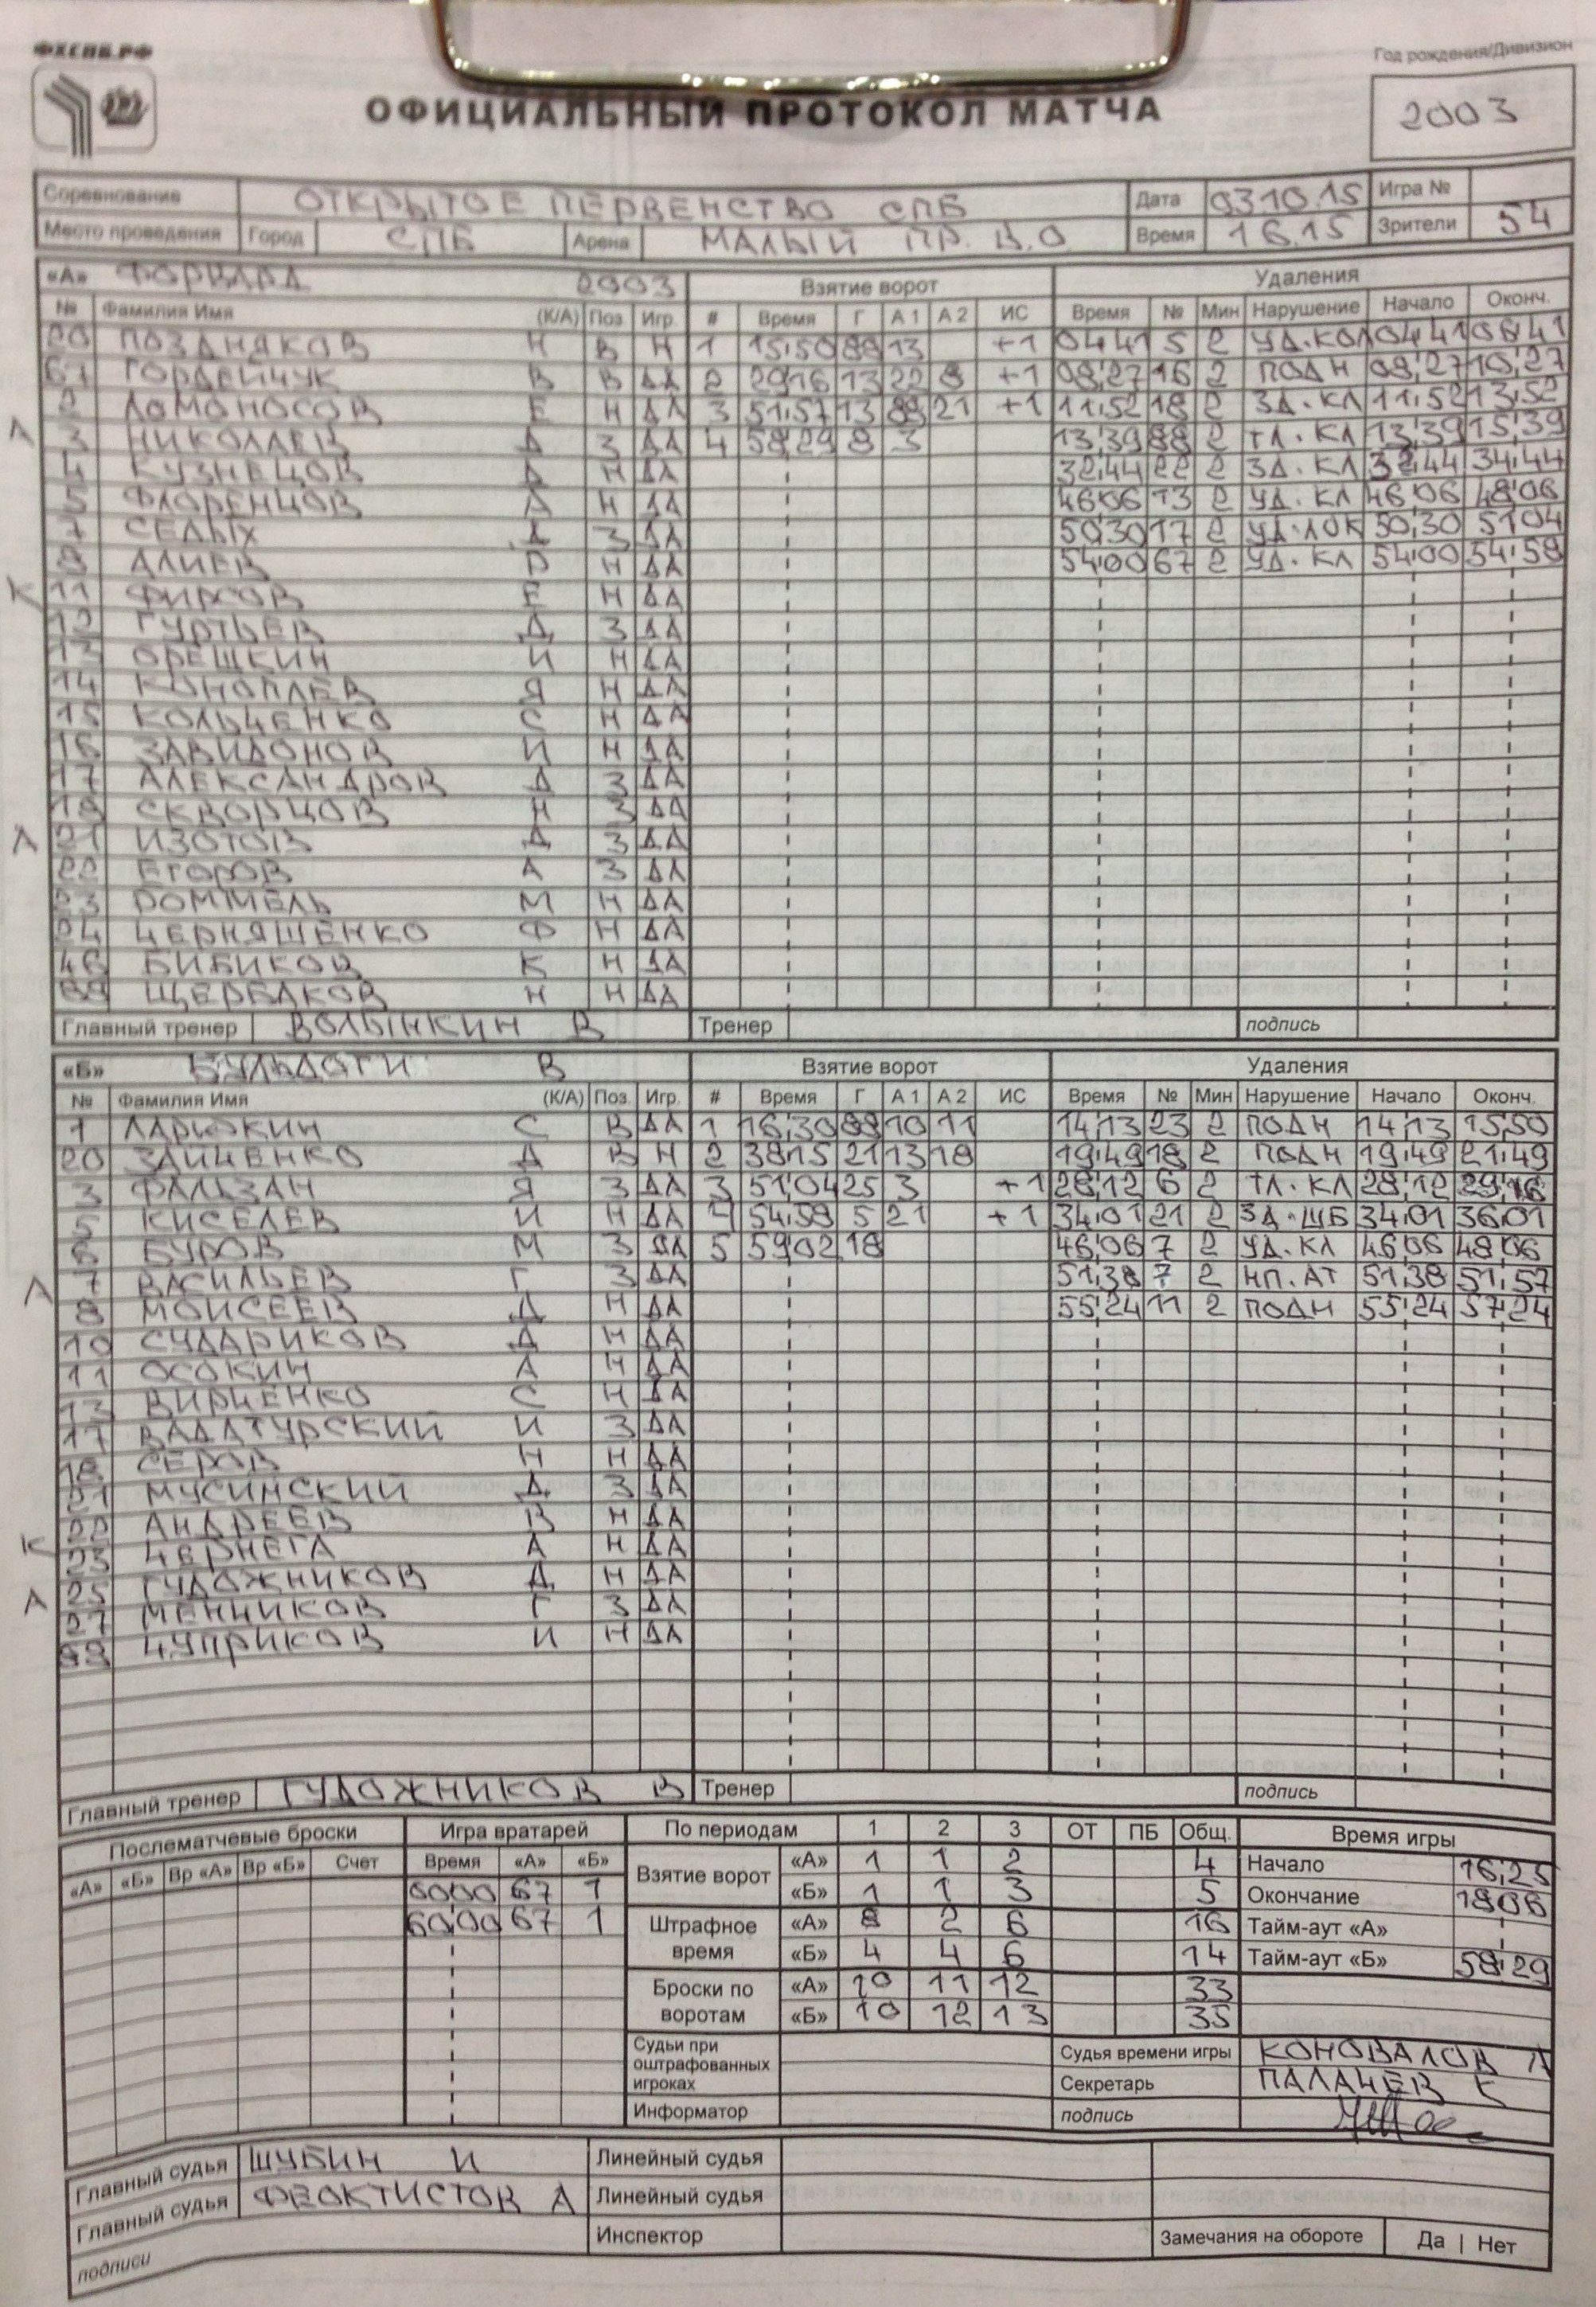 ФХСПБ.РФ
Год рождения/Дивизион
ОФИЦИАЛЬНЫЙ ПРОТОКОЛ МАТЧА
2003
Соревнование ОТКРЫТОЕ ПЕРВЕНСТВО СПБ Дата 03.10.15 Игра №
Место проведения Город СПБ Арена МАЛЫЙ ПР. В.О Время 16.15 Зрители 54
«А» ФОРВАРД 2003 Взятие ворот Удаления
№ Фамилия Имя (К/А) Поз. Игр. # Время Г А 1 А 2 ИС Время № Мин Нарушение Начало Оконч.
20 ПОЗДНЯКОВ Н В Н 1 15:50 88 13 +1 04:41 5 2 УД.КОЛ 04:41 06:41
67 ГОРДЕЙЧУК В В ДА 2 29:16 13 22 8 +1 08:27 16 2 ПОДН 08:27 10:27
2 ЛОМОНОСОВ Е Н ДА 3 51:57 13 88 21 +1 11:52 18 2 ЗД.КЛ 11:52 13:52
А 3 НИКОЛАЕВ Д З ДА 4 58:29 8 3 13:39 88 2 ТЛ.КЛ 13:39 15:39
4 КУЗНЕЦОВ Д Н ДА 32:44 22 2 ЗД.КЛ 32:44 34:44
5 ФЛОРЕНЦОВ А Н ДА 46:06 13 2 УД.КЛ 46:06 48:06
7 СЕДЫХ Д З ДА 50:30 17 2 УД.ЛОК 50:30 51:04
8 АЛИЕВ Р Н ДА 54:00 67 2 УД.КЛ 54:00 54:58
К 11 ФИРСОВ Е Н ДА
12 ГУРТЬЕВ Д З ДА
13 ОРЕШКИН И Н ДА
14 КОНОПЛЕВ Я Н ДА
15 КОЛЬЦЕНКО С Н ДА
16 ЗАВИДОНОВ И Н ДА
17 АЛЕКСАНДРОВ Д З ДА
18 СКВОРЦОВ Н З ДА
А 21 ИЗОТОВ Д З ДА
22 ЕГОРОВ А З ДА
23 РОММЕЛЬ М Н ДА
24 ЧЕРНЯШЕНКО Ф Н ДА
46 БИБИКОВ К Н ДА
88 ЩЕРБАКОВ Н Н ДА
Главный тренер ВОЛЫНКИН В Тренер подпись
«Б» БУЛЬДОГИ В Взятие ворот Удаления
№ Фамилия Имя (К/А) Поз. Игр. # Время Г А 1 А 2 ИС Время № Мин Нарушение Начало Оконч.
1 ЛАРЮКИН С В ДА 1 16:30 88 10 11 14:13 23 2 ПОДН 14:13 15:50
20 ЗАЙЧЕНКО Д В Н 2 38:15 21 13 18 19:49 18 2 ПОДН 19:49 21:49
3 ФАЛЬЗАН Я З ДА 3 51:04 25 3 +1 28:12 6 2 ТЛ.КЛ 28:12 29:16
5 КИСЕЛЕВ И Н ДА 4 54:58 5 21 +1 34:01 21 2 ЗД.ШБ 34:01 36:01
6 БУРОВ М З ДА 5 59:02 18 46:06 7 2 УД.КЛ 46:06 48:06
А 7 ВАСИЛЬЕВ Г З ДА 51:38 7 2 НП.АТ 51:38 51:57
8 МОИСЕЕВ Д Н ДА 55:24 11 2 ПОДН 55:24 57:24
10 СУДАРИКОВ Д Н ДА
11 ОСОКИН А Н ДА
13 ВИРЧЕНКО С Н ДА
17 ВАДАТУРСКИЙ И З ДА
18 СЕРОВ Н Н ДА
21 МУСИНСКИЙ Д З ДА
22 АНДРЕЕВ В Н ДА
К 23 ЧЕРНЕГА А Н ДА
25 ГУДОЖНИКОВ Д Н ДА
А 27 МЕНЧИКОВ Г З ДА
88 ЧУПРИКОВ И Н ДА
Главный тренер ГУДОЖНИКОВ В Тренер подпись
Послематчевые броски Игра вратарей По периодам 1 2 3 ОТ ПБ Общ. Время игры
«А» «Б» Вр «А» Вр «Б» Счет Время «А» «Б» Взятие ворот «А» 1 1 2 4 Начало 16:25
00:00 67 1 «Б» 1 1 3 5 Окончание 18:06
60:00 67 1 Штрафное время «А» 8 2 6 16 Тайм-аут «А»
«Б» 4 4 6 14 Тайм-аут «Б» 58:29
Броски по воротам «А» 10 11 12 33
«Б» 10 12 13 35
Судьи при оштрафованных игроках Судья времени игры КОНОВАЛОВ А
Секретарь ПАЛАЧЕВ К
Информатор подпись
Главный судья ШУБИН И Линейный судья
Главный судья ФЕОКТИСТОВ А Линейный судья
подписи Инспектор Замечания на обороте Да | Нет